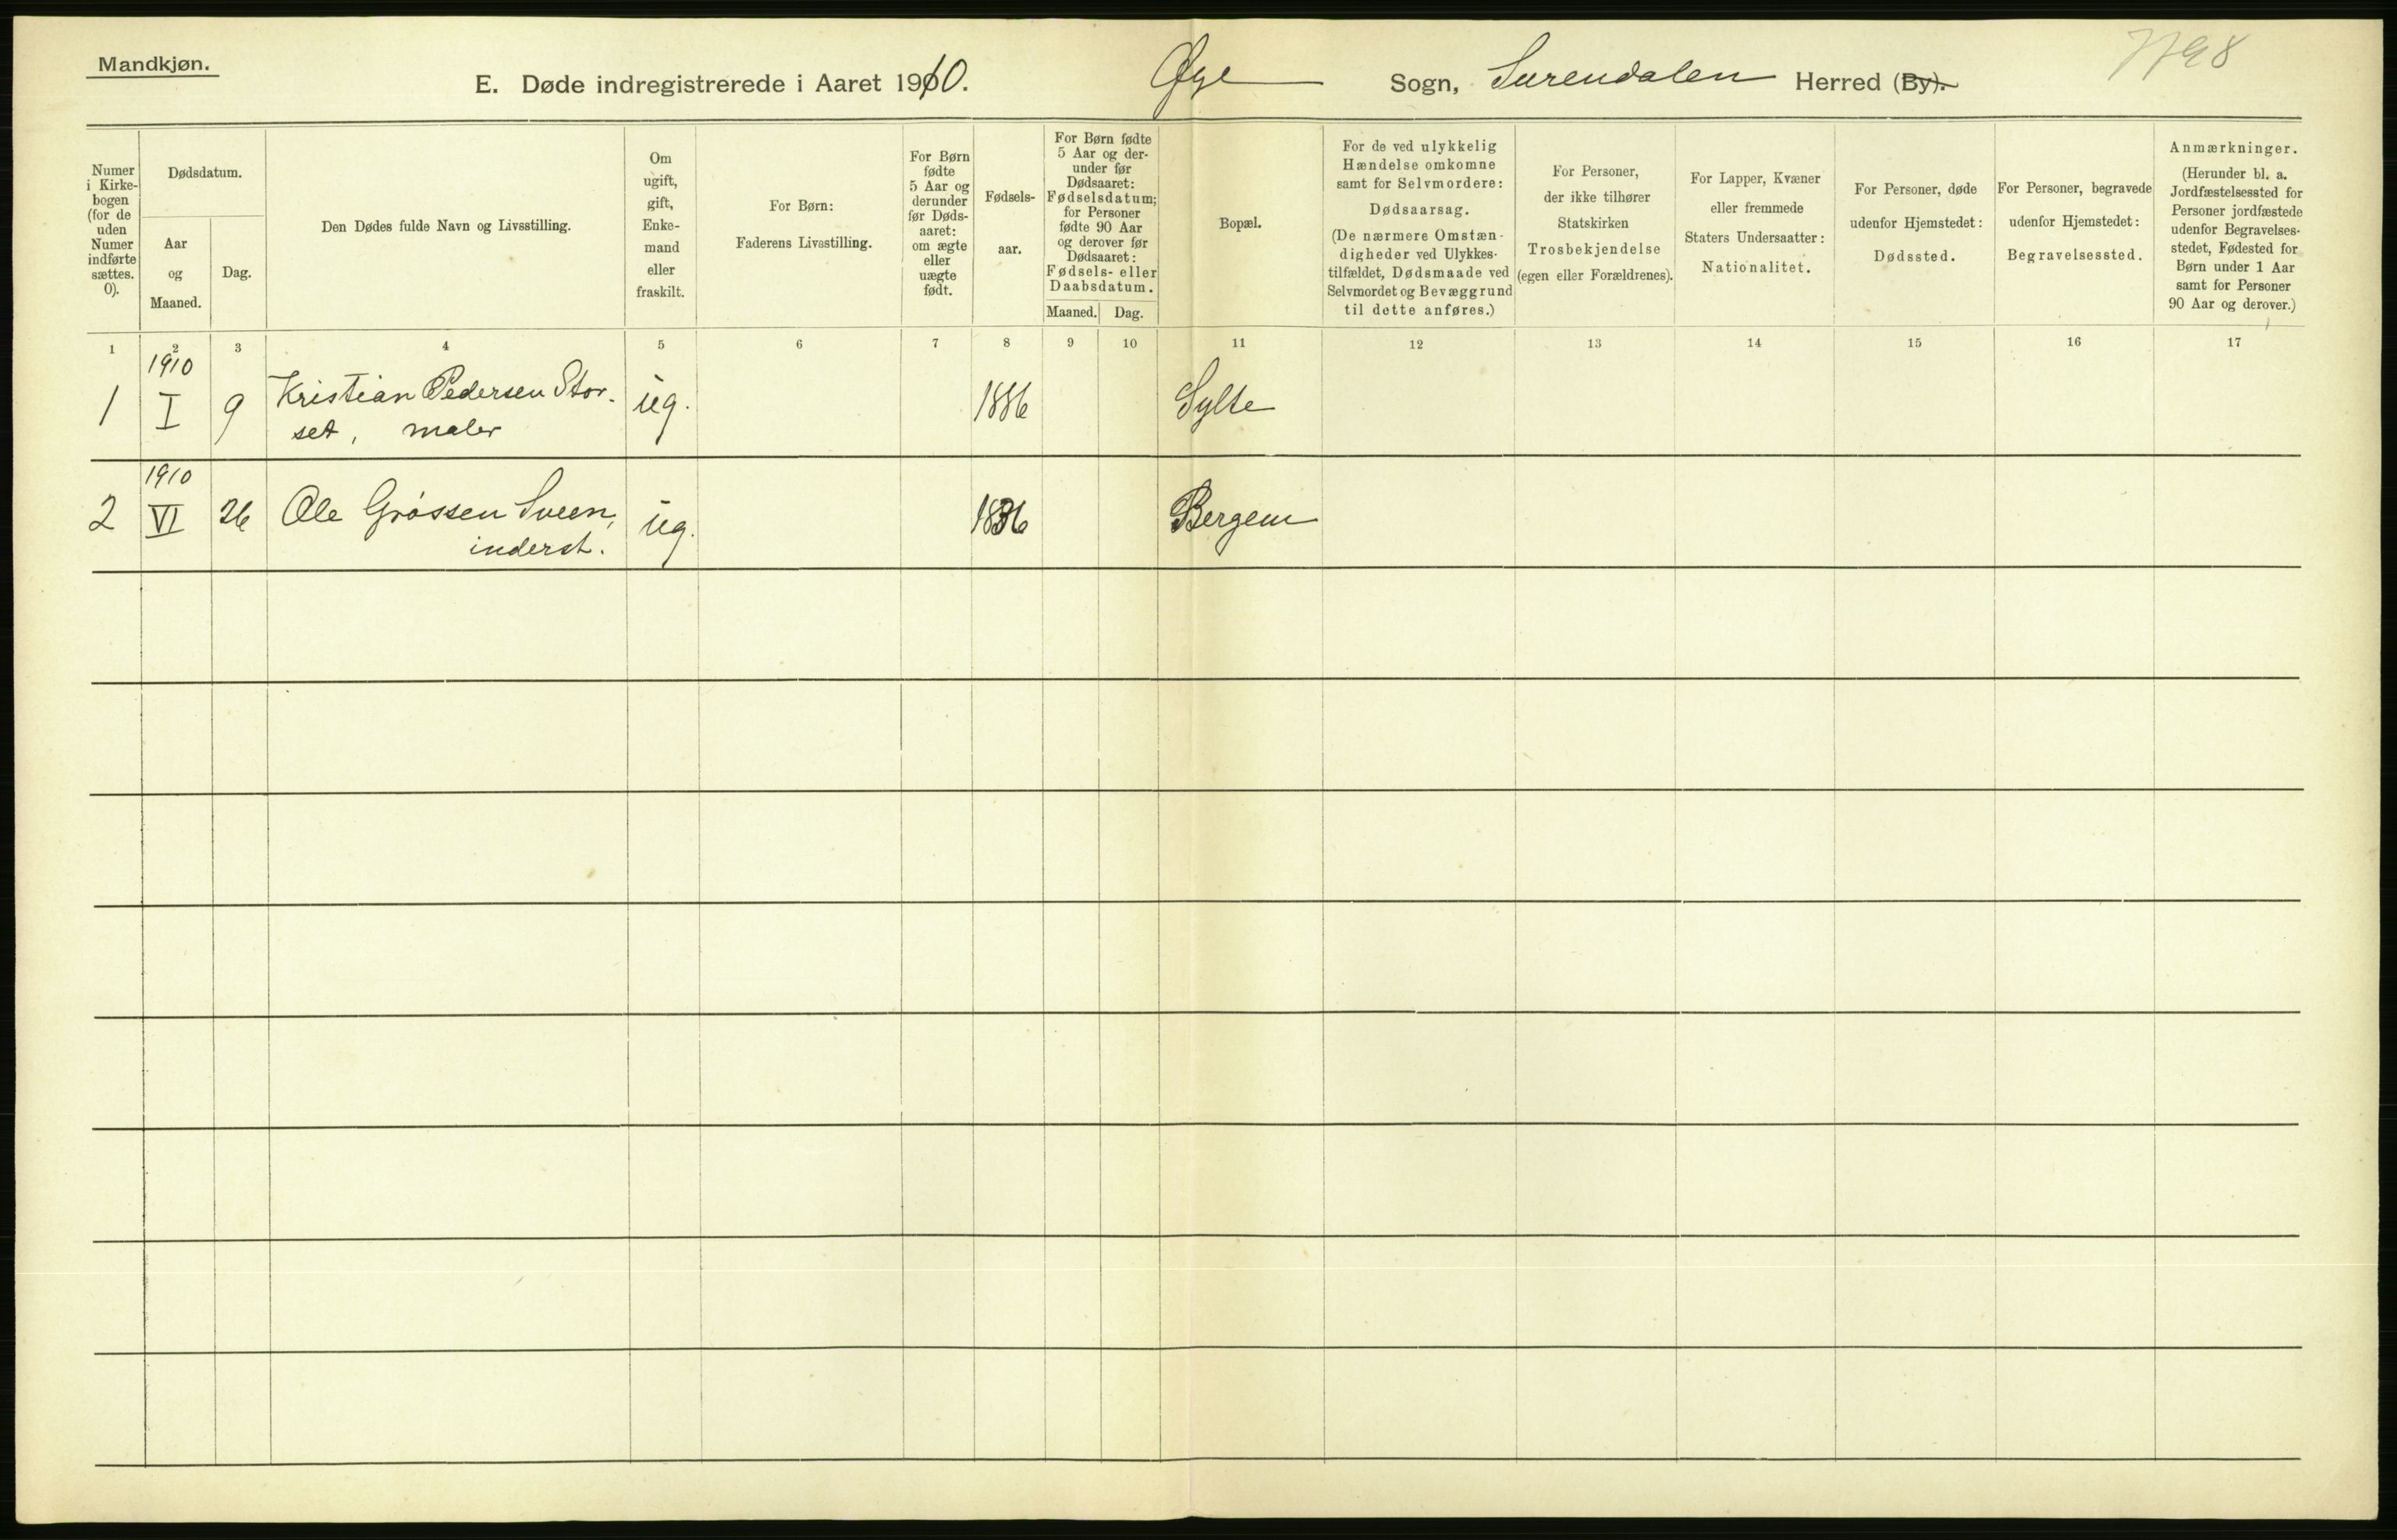 Mandkjøn.
E. Døde indregistrerede i Aaret 1910. Øye Sogn, Surendalen Herred (By).
Numer
i Kirke-
bogen
(for de
uden
Numer
indførte
sættes.
0).
Dødsdatum.
Aar
og
Maaned.
Dag.
Den Dødes fulde Navn og Livsstilling.
Om
ugift,
gift,
Enke-
mand
eller
fraskilt.
For Børn:
Faderens Livsstilling.
For Børn
fødte
5 Aar og
derunder
før Døds-
aaret:
om ægte
eller
uægte
født.
Fødsels-
aar.
For Børn fødte
5 Aar og der-
under før
Dødsaaret:
Fødselsdatum;
for Personer
fødte 90 Aar
og derover før
Dødsaaret:
Fødsels- eller
Daabsdatum.
Maaned. Dag.
Bopæl.
For de ved ulykkelig
Hændelse omkomne
samt for Selvmordere:
Dødsaarsag.
(De nærmere Omstæn-
digheder ved Ulykkes-
tilfældet, Dødsmaade ved
Selvmordet og Bevæggrund
til dette anføres.)
For Personer,
der ikke tilhører
Statskirken
Trosbekjendelse
(egen eller Forældrenes).
For Lapper, Kvæner
eller fremmede
Staters Undersaatter:
Nationalitet.
For Personer, døde
udenfor Hjemstedet:
Dødssted.
For Personer, begravede
udenfor Hjemstedet:
Begravelsessted.
Anmærkninger.
(Herunder bl. a.
Jordfæstelsessted for
Personer jordfæstede
udenfor Begravelses-
stedet, Fødested for
Børn under 1 Aar
samt for Personer
90 Aar og derover.)
1 2 3 4 5 6 7 8 9 10 11 12 13 14 15 16 17
1910
1 I 9 Kristian Pedersen Stor- ug. 1886 Sylte
set, maler
1910
2 VI 26 Ole Grössen Sveen, ug. 1836 Bergem
inderst.